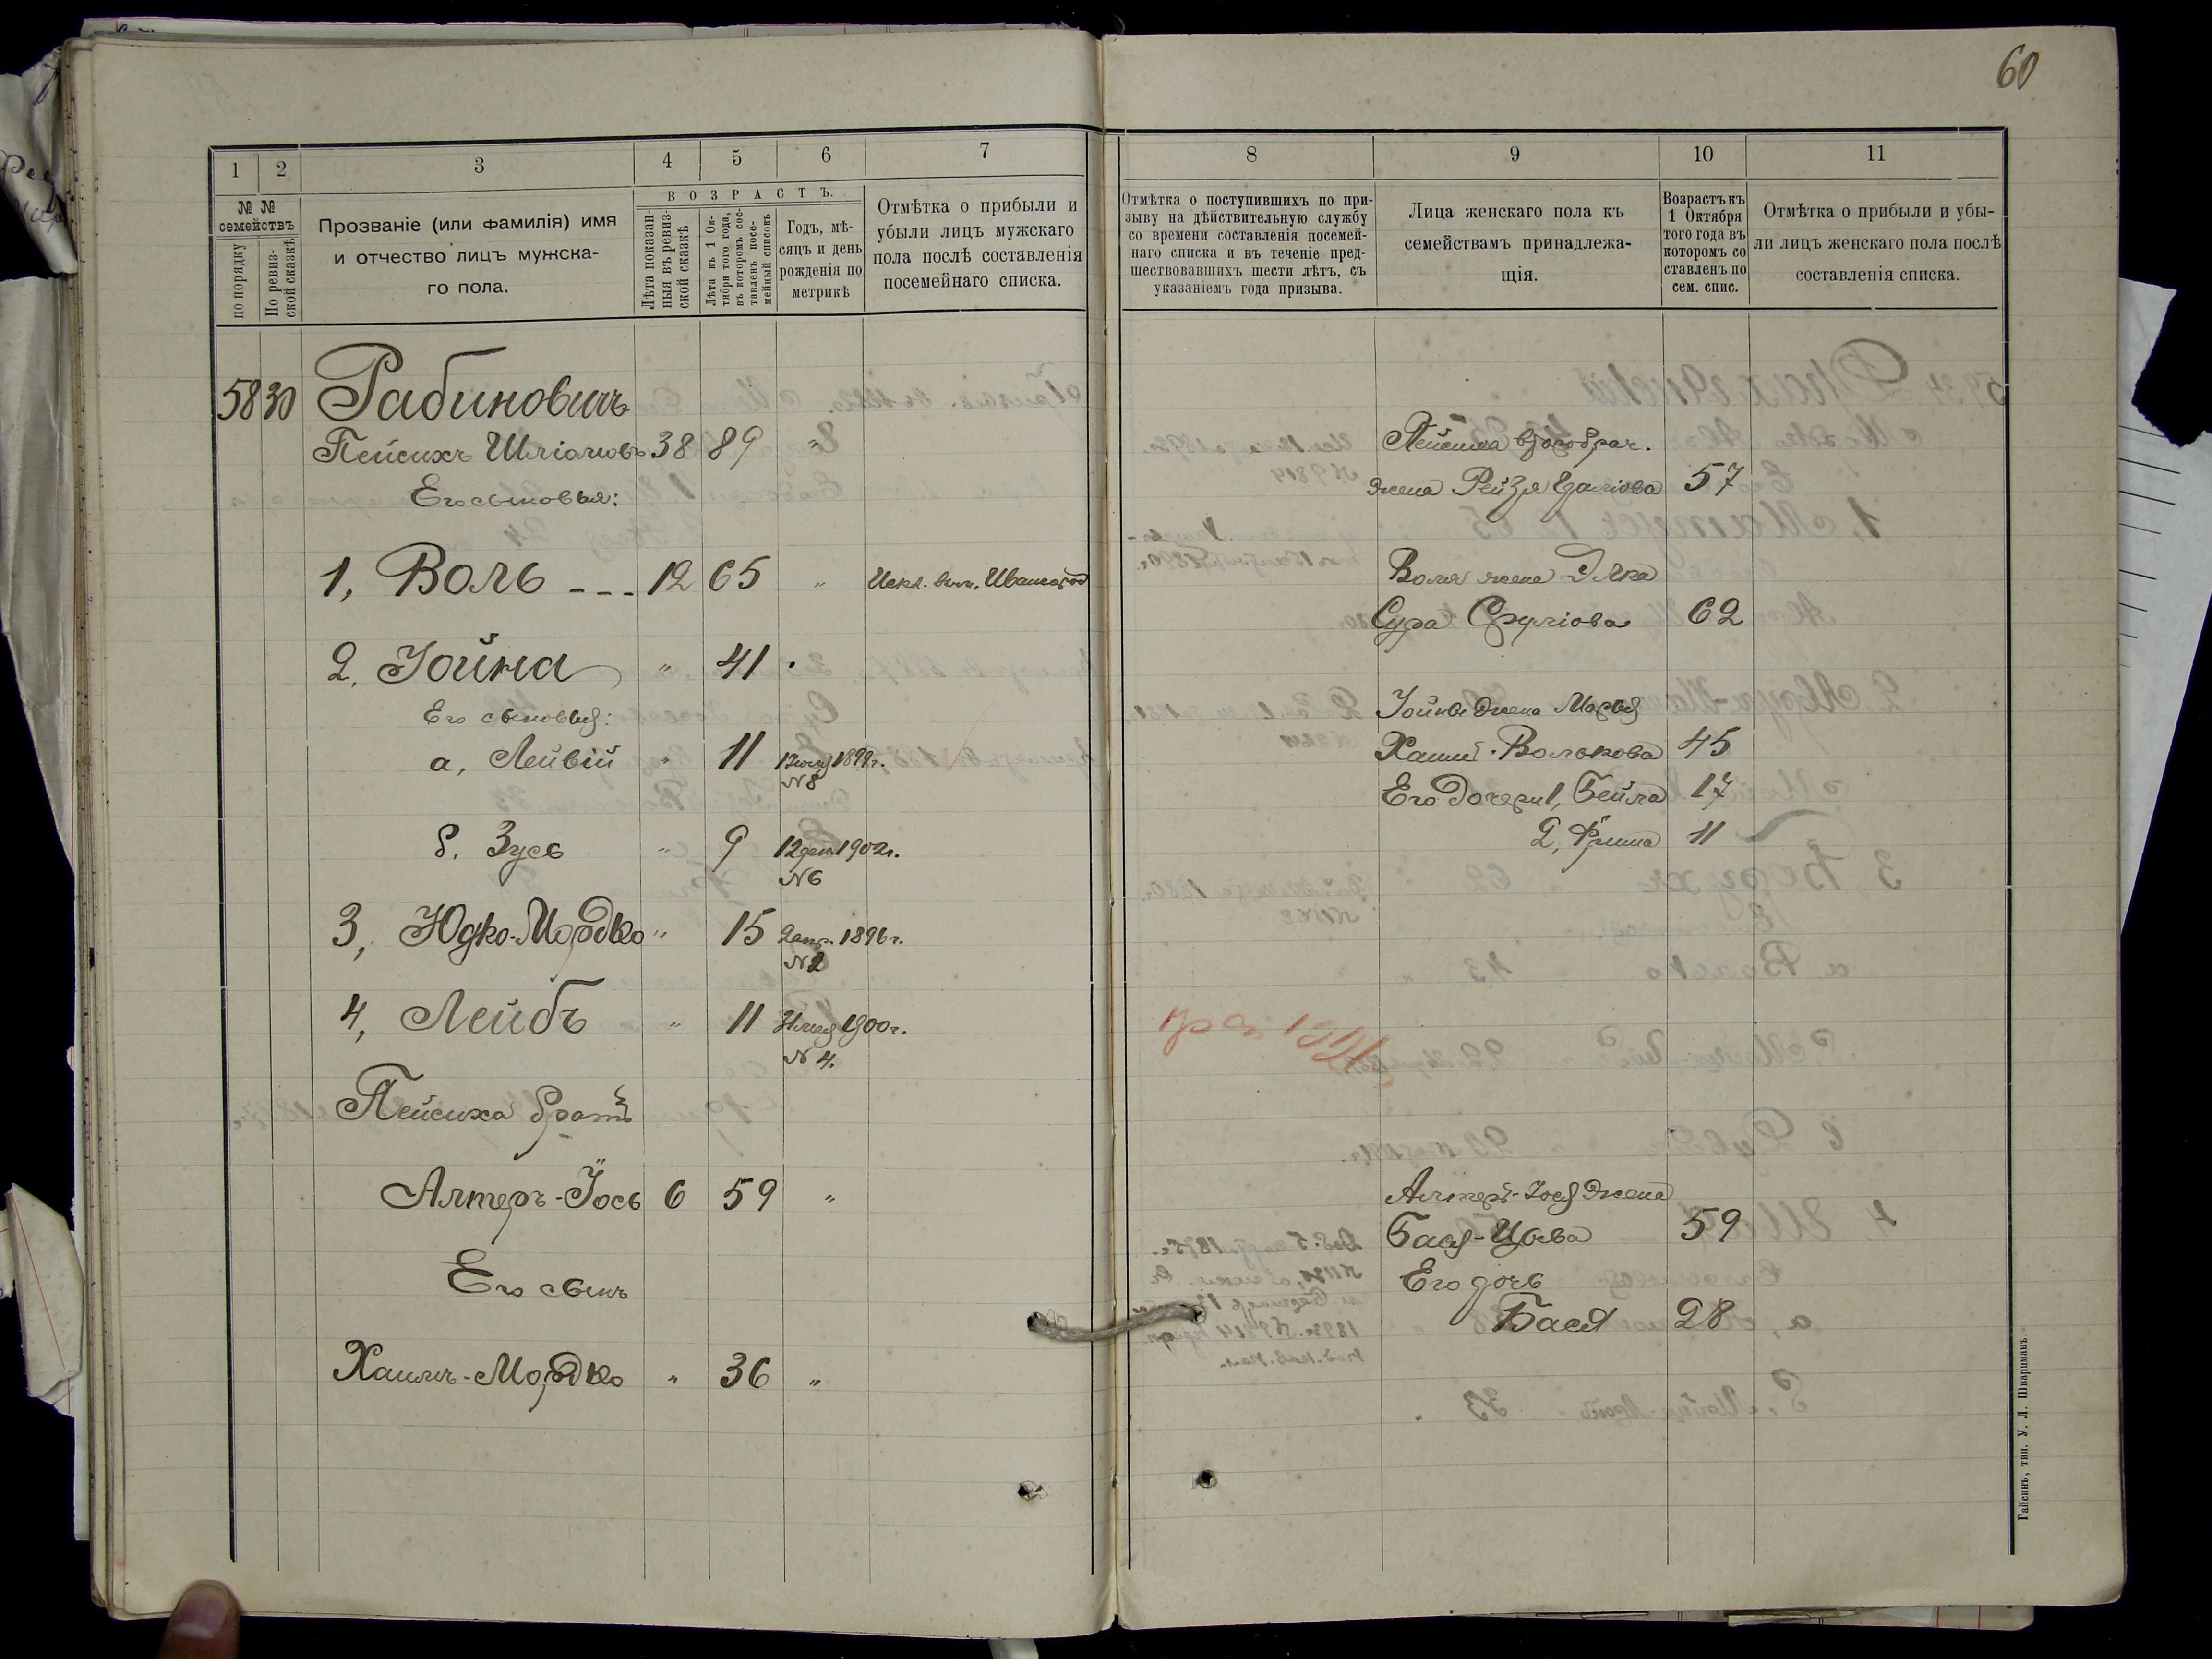 60
1 2 3 4 5 6 7
№ № семействъ
по порядку
По ревиз-
ской сказкѣ
Прозваніе (или фамилія) имя
и отчество лицъ мужска-
го пола.
ВОЗРАСТЪ.
Лѣта показан-
ныя въ ревиз-
ской сказкѣ
Лѣта къ 1 Ок-
тября того года,
въ которомъ сос-
тавленъ посе-
мейный списокъ
Годъ, мѣ-
сяцъ и день
рожденія по
метрикѣ
Отмѣтка о прибыли и
убыли лицъ мужскаго
пола послѣ составленія
посемейнаго списка.
58 30 Рабиновичъ
Пейсихъ Шліомовъ 38 89 "
Его сыновья:
1, Воль --- 12 65 " Искл.
2, Іойна " 41
Его сыновья:
а, Лейвій " 11 1899г.
№8
б. Зусь " 9 12 1902г.
№6
3, Юдко-Мордко " 15 2 апр. 1896г.
№2
4, Лейбъ " 11 1900г.
№ 4.
Пейсиха братъ
Алтеръ-Іось 6 59 "
Его сынъ
Хаимъ-Мордко " 36 "
8 9 10 11
Отмѣтка о поступившихъ по при-
зыву на дѣйствительную службу
со времени составленія посемей-
наго списка и въ теченіе пред-
шествовавшихъ шести лѣтъ, съ
указаніемъ года призыва.
Лица женскаго пола къ
семействамъ принадлежа-
щія.
Возрастъ къ
1 Октября
того года въ
которомъ со
ставленъ по
сем. спис.
Отмѣтка о прибыли и убы-
ли лицъ женскаго пола послѣ
составленія списка.
Пейсиха второбрач.
жена Рейзя 57
Воля жена Элка
Сура Сруліова 62
Іойны жена Марья
Волькова 45
Его дочери 1, Бейла 17
2, 11
Алтеръ-Іося жена
Бася- 59
Его дочь
Бася 28
Гайсинъ, тип. У. Л. Шварцманъ.